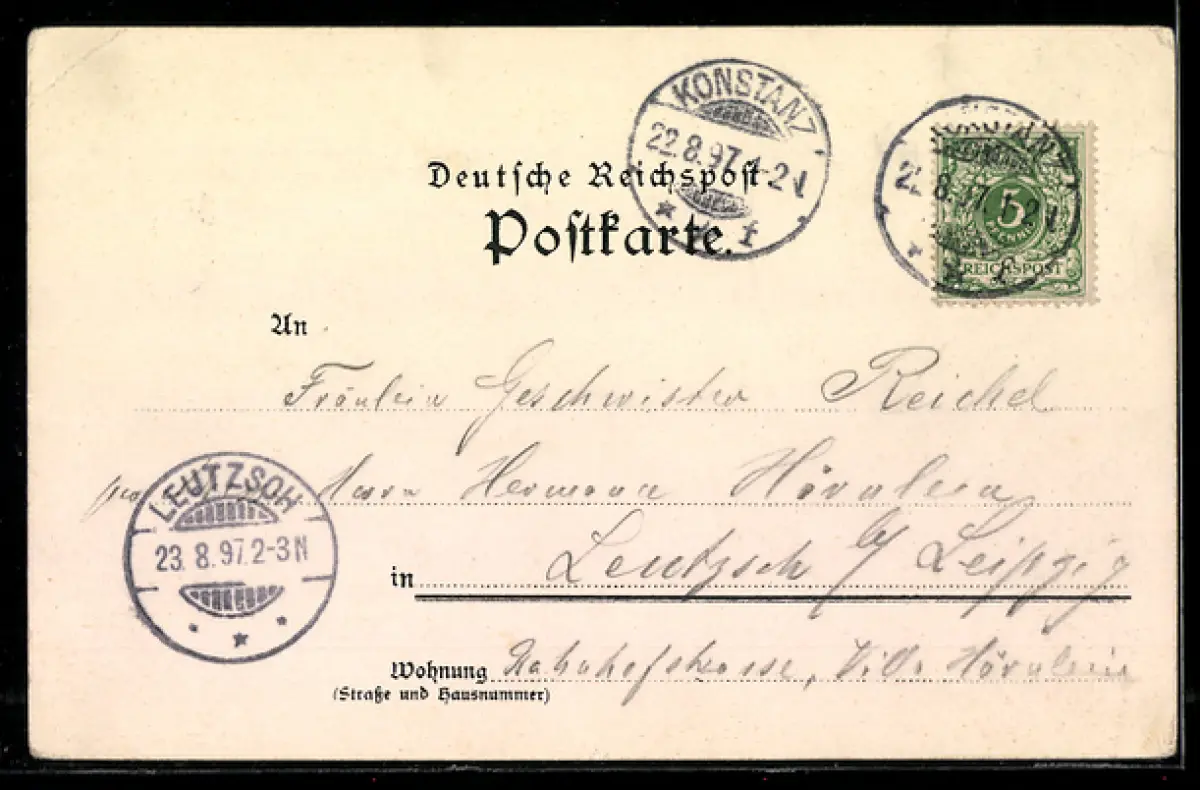 KONSTANZ
22.8.97.1-2N
* f
KONSTANZ
8.97.1-2N
* * f
5
PFENNIG
REICHSPOST
Deutsche Reichspost.
Postkarte.
An
Fräulein Geschwister Reichel
Herrn Hermann Hörnlein
in Leutzsch b/ Leipzig
Wohnung Bahnhofstrasse, Villa Hörnlein
(Straße und Hausnummer)
LEUTZSCH
23.8.97.2-3N
* * *